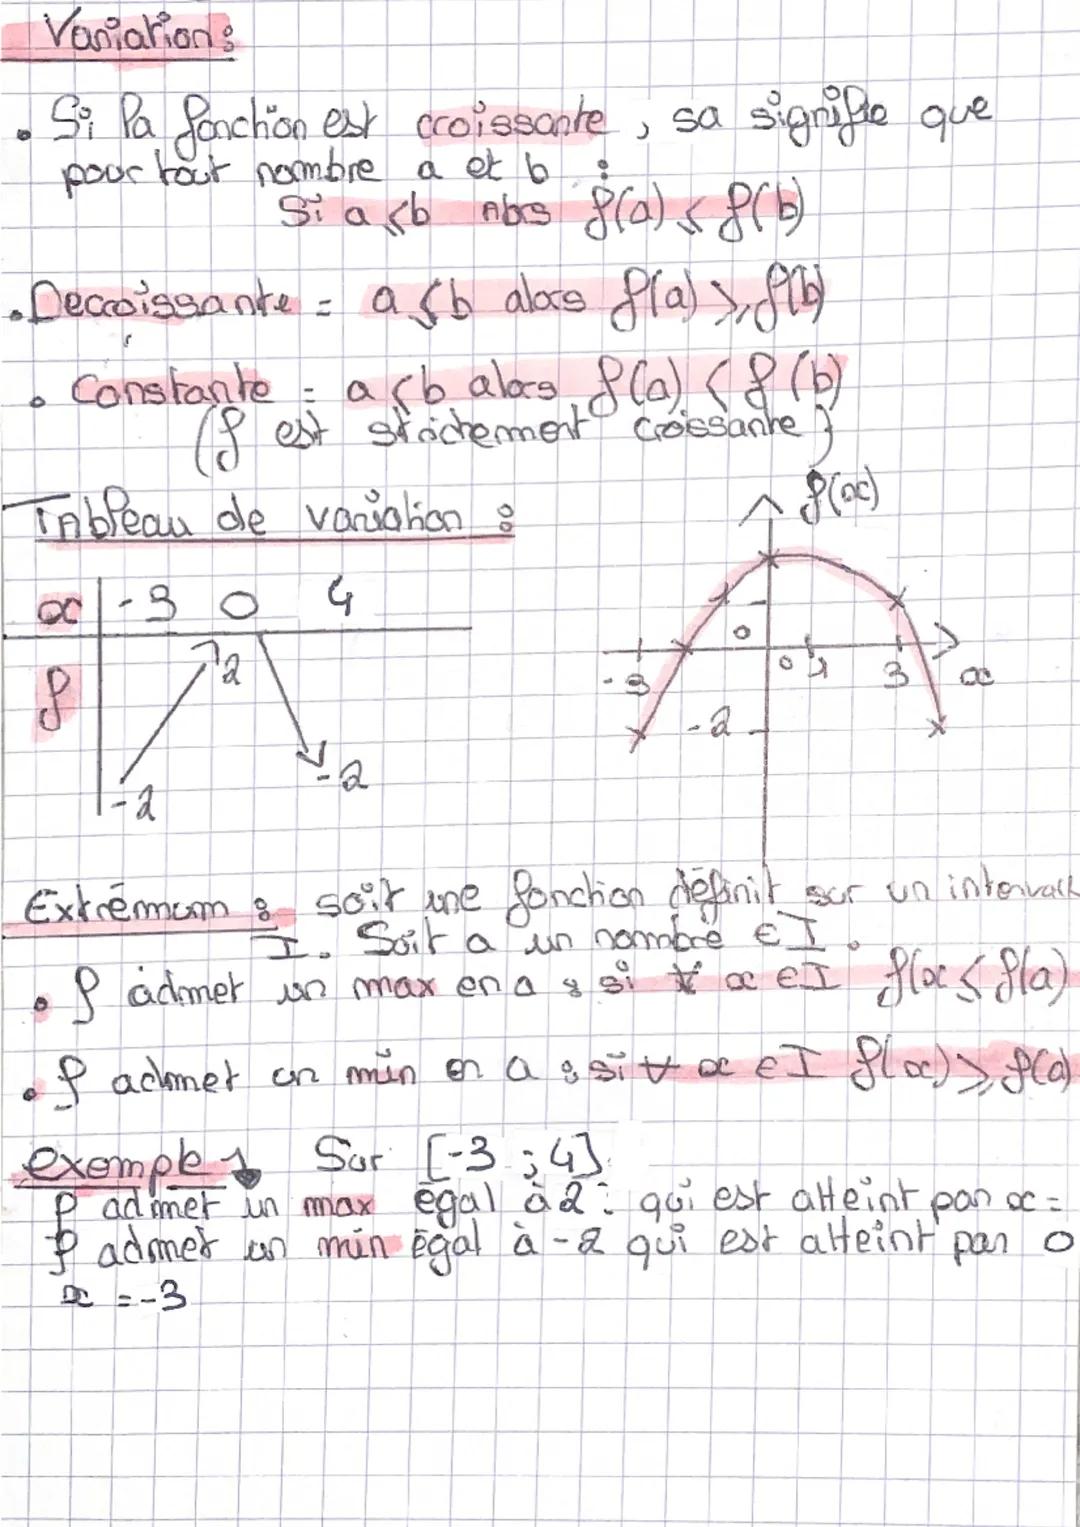 Variation :
• Si la fonction est croissante, sa signifie que
pour tout nombre a et b :
Si a ≤ b Alors f(a) ≤ f(b)
• Decroissante = a ≤ b alors f(a) ≥ f(b)
• Constante = a < b alors f(a) < f(b)
(f est strictement croissante)
Tableau de variation :
f(x)
x -3 0 4
f 2
-2 -2
0
-3 0 1 3 x
-2
Extrémum : soit une fonction définit sur un intervalle
I. Soit a un nombre ∈ I.
• f admet un max en a : si ∀ x ∈ I f(x ≤ f(a)
• f admet un min en a : si ∀ x ∈ I f(x) ≥ f(a)
exemple Sur [-3 ; 4]
f admet un max égal à 2 : qui est atteint par x =
f admet un min égal à -2 qui est atteint par 0
x = -3